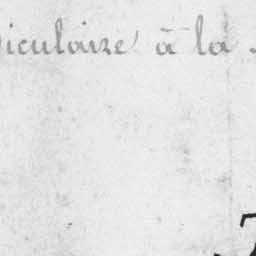 diculaire à la